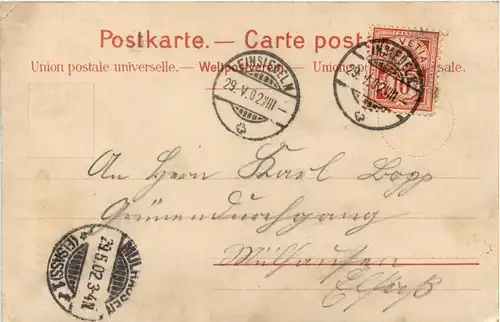 Postkarte. — Carte postale
Union postale universelle. — Weltpostverein. — Union postale universale.
EINSIEDELN
29.V.02.VIII—
EINSIEDELN
29.V.02.VIII—
HELVETIA
10
An Herrn Karl Bopp
Grünendurchgang
Mülhausen
Elsaß
MÜLHAUSEN
29.5.02.3-4N
(ELSASS) 1